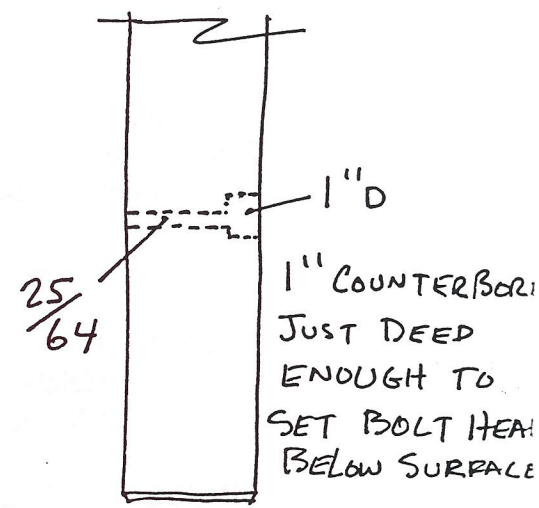 1"D
25/64
1" COUNTERBOR
JUST DEED
ENOUGH TO
SET BOLT HEA
BELOW SURFACE